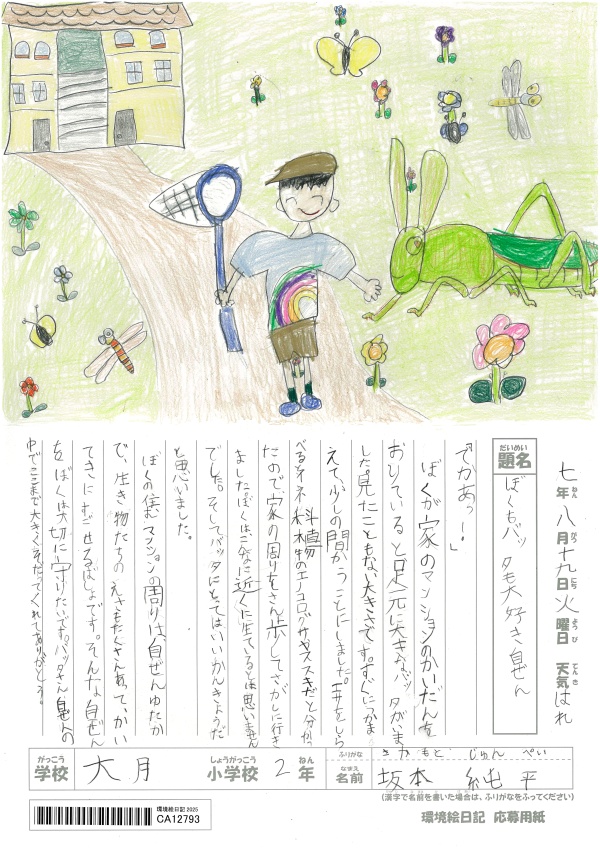 七年八月十九日火曜日 天気はれ
ねん がつ にち ようび てんき
だいめい
題名
ぼくもバッタも大好き自ぜん
「でかあっ！」
ぼくが家のマンションのかいだんを
おりていると足元に大きなバッタがいま
した。見たこともない大きさです。すぐにつかま
えて、少しの間かうことにしました。
べるとイネ科植物のエノコログサやススキだと分かっ
たので、家の周りをさん歩してさがしに行き
ました。ぼくはこんなに近くに生えているとは思いません
でした。そしてバッタにとってはいいかんきょうだ
と思いました。
ぼくの住むマンションの周りは自ぜんゆたか
で、生き物たちのえさもたくさんあって、かい
てきにすごせるばしょです。そんな自ぜん
を、ぼくは大切に守りたいです。バッタさん、自ぜんの
中でここまで大きくそだってくれてありがとう。
がっこう
学校
大月
しょうがっこう
小学校
2
ねん
年
ふりがな
さかもと じゅんぺい
なまえ
名前
坂本 純平
(漢字で名前を書いた場合は、ふりがなをふってください)
環境絵日記2025
CA12793
環境絵日記 応募用紙